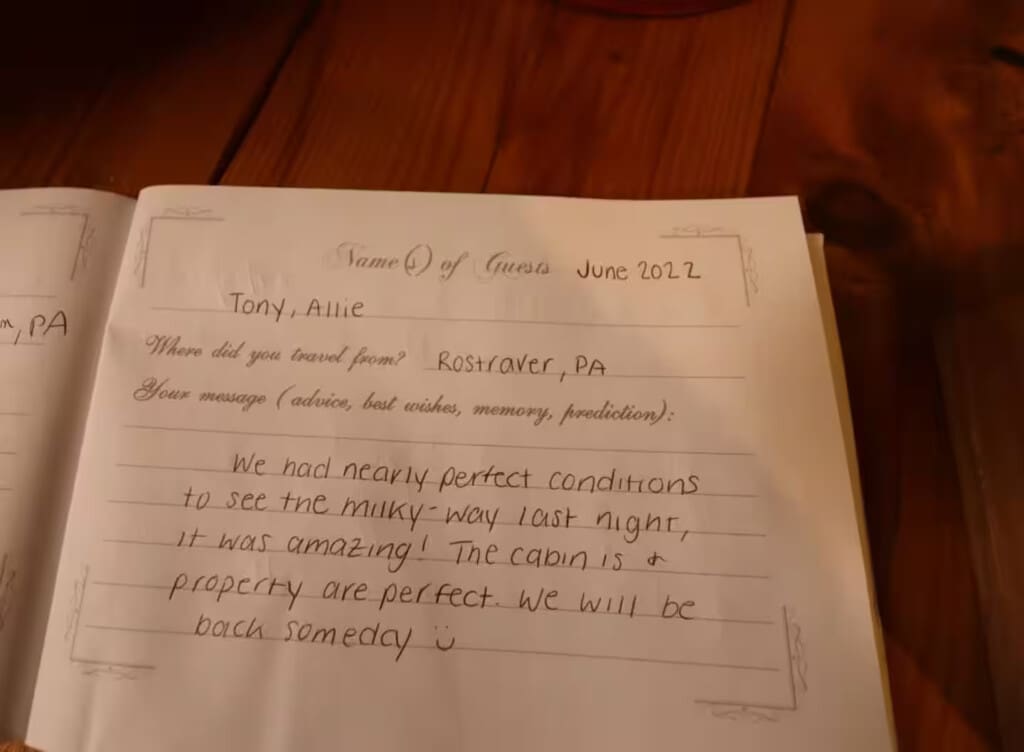 Name(s) of Guests June 2022
Tony, Allie
, PA
Where did you travel from? Rostraver, PA
Your message (advice, best wishes, memory, prediction):
We had nearly perfect conditions
to see the milky-way last night,
it was amazing! The cabin is &
property are perfect. We will be
back someday